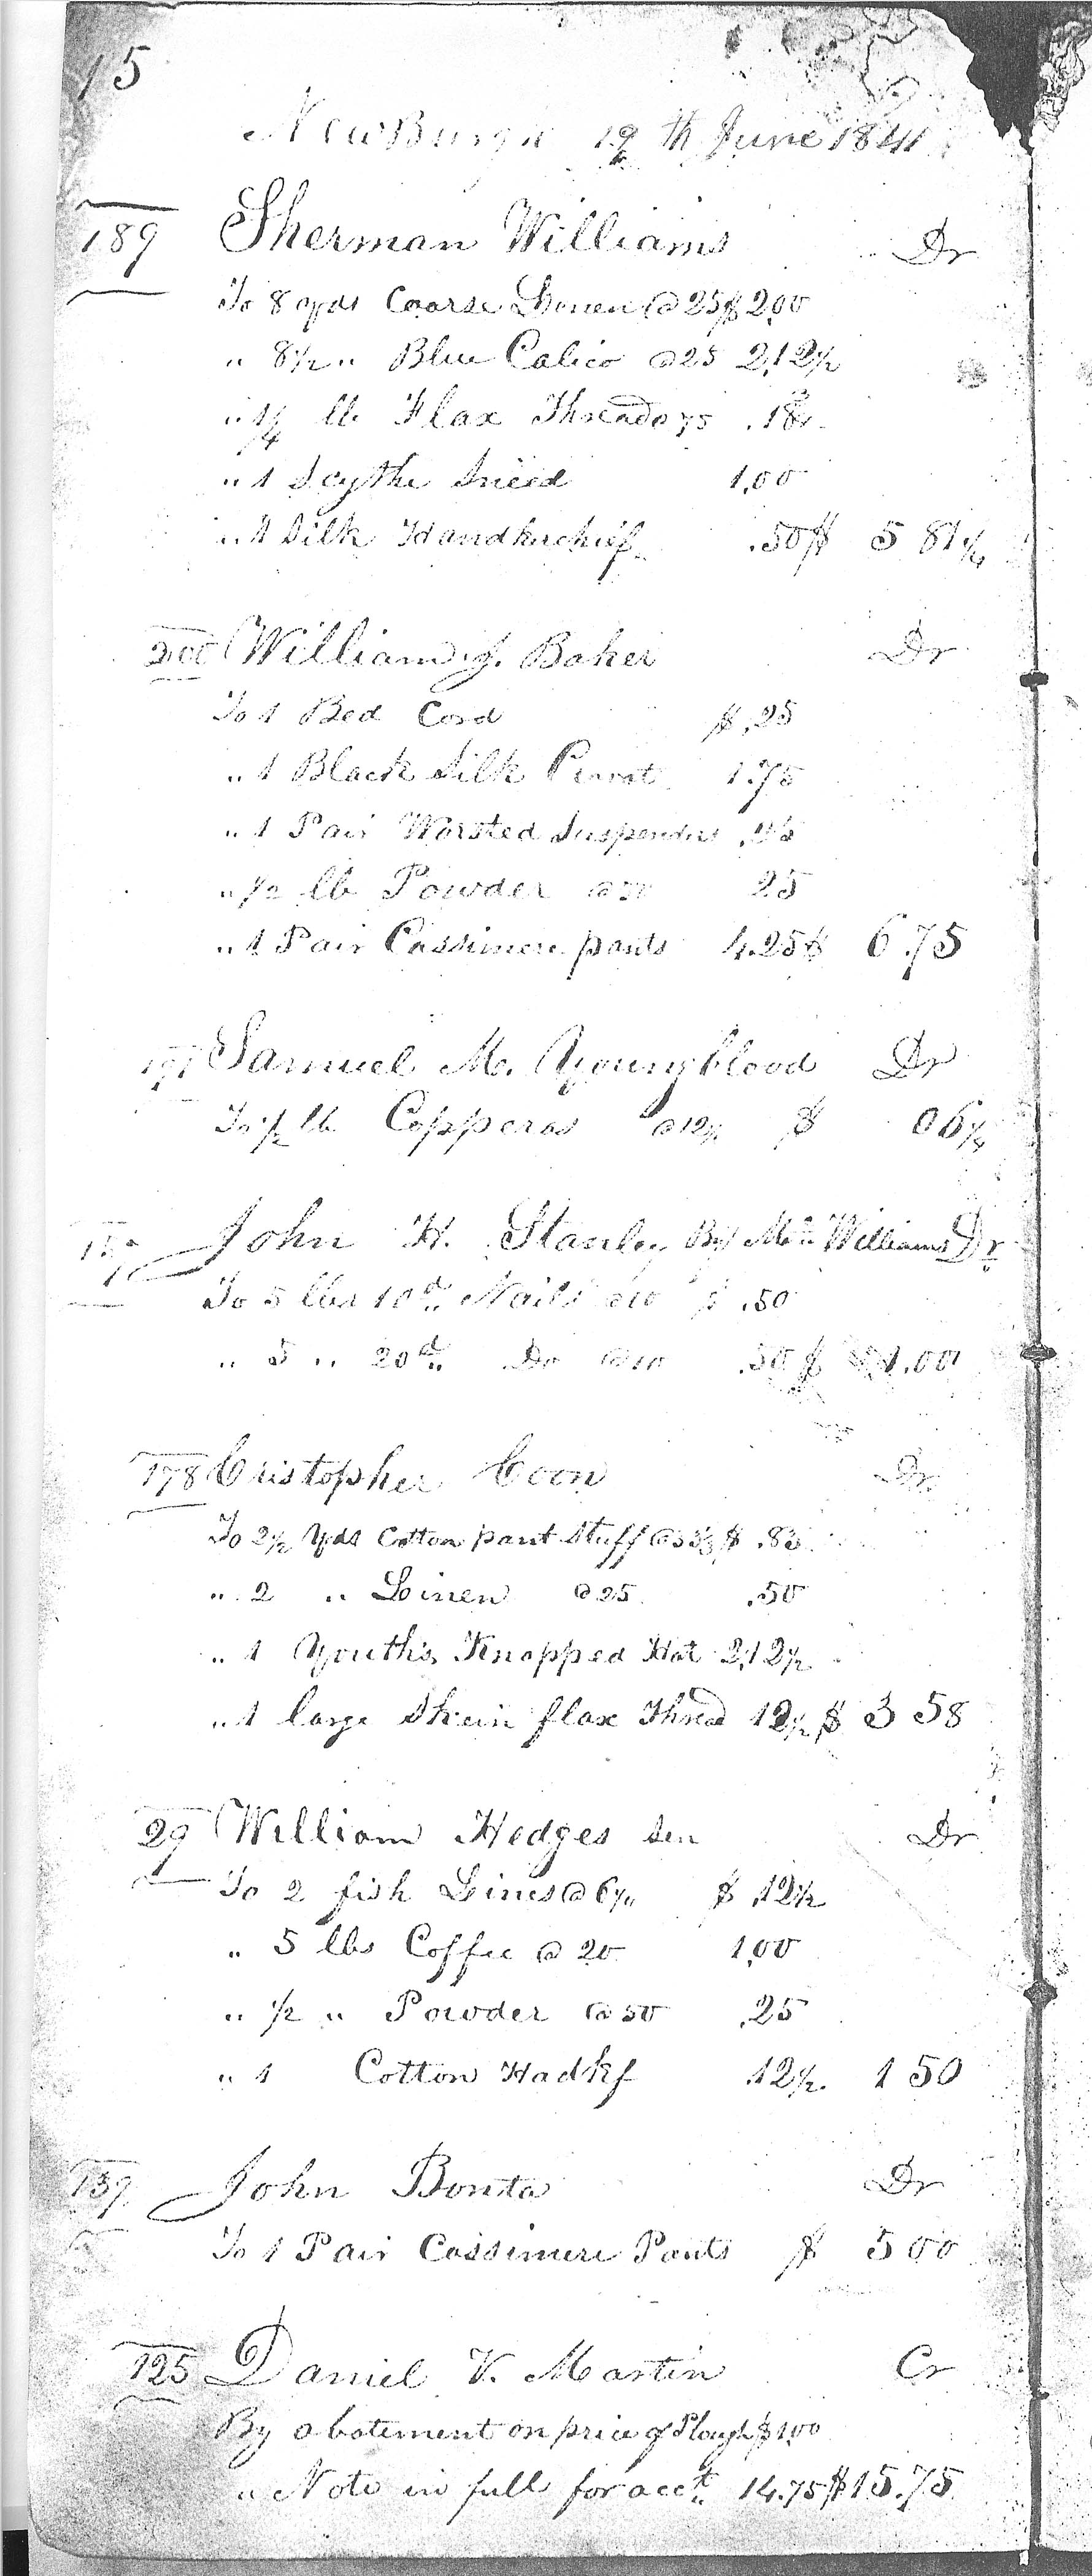 15
NewBurgh 19th June 1841
189 Sherman Williams Dr
To 8 yds Coarse Linen @ 25 $ 2,00
" 8½ " Blue Calico @25 2,12½
" ¼ lb Flax Thread @ 75 .18¾
" 1 Scythe Sneed 1,00
" 1 Silk Handkerchief .50 $ 5 81¼
200 William J. Baker Dr
To 1 Bed Cord $ ,25
" 1 Black Silk Cravat 1.75
" 1 Pair Worsted Suspenders
" ½ lb Powder @ 50 25
" 1 Pair Cassimere pants 4.25 $ 6.75
Samuel M. Youngblood Dr
To ½ lb Copperas @ 12½ $ 06¼
John H. Stanley By Mr. Williams Dr
To 5 lbs 10d. Nails @ 10 $ .50
" 5 " 20d. Do @ 10 .50 $ 1.00
178 Cristopher Coon Dr
To 2½ Yds Cotton pant Stuff @ 33⅓ $ .83
" 2 " Linen @ 25 .50
" 1 Youth's Knapped Hat 2,12½
" 1 large Skein flax Thread 12½ $ 3 58
29 William Hedges Sen Dr
To 2 fish Lines @ 6¼ $ ,12½
" 5 lbs Coffee @ 20 1,00
" ½ " Powder @ 50 ,25
" 1 Cotton Hadkf .12½ 1 50
139 John Bonta Dr
To 1 Pair Cassimere Pants $ 5 00
125 Daniel V. Martin Cr
By abatement on price of Plough $ 1,00
" Note in full for acct. 14.75 $ 15.75